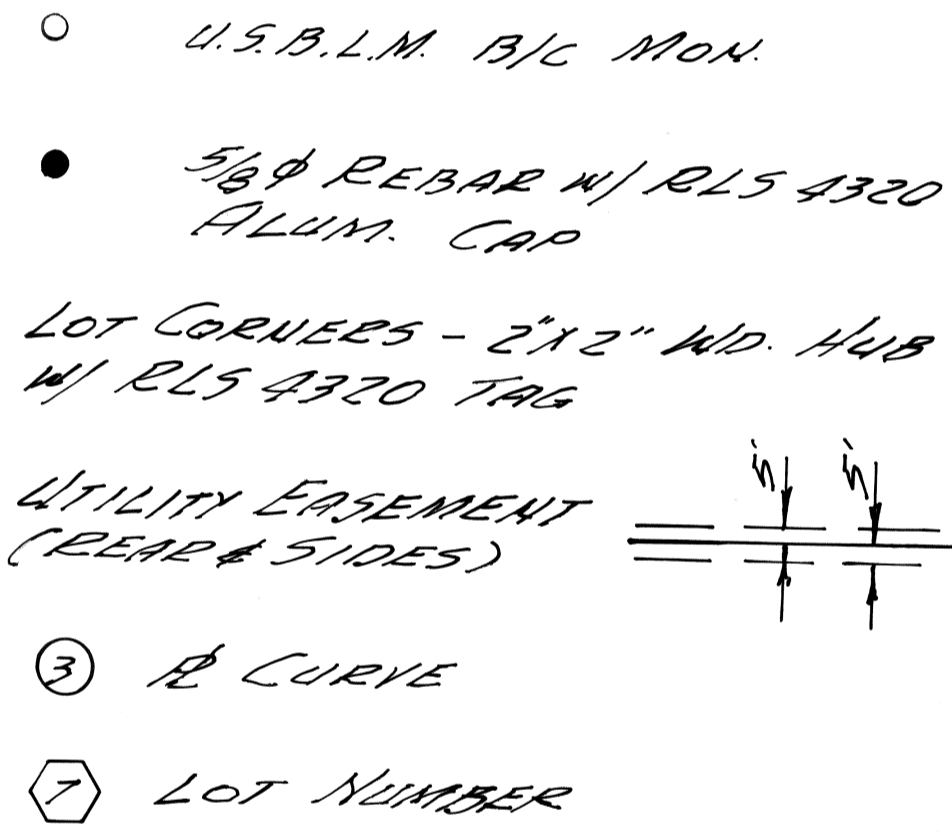 U.S.B.L.M. B/C MON.
5/8 Ø REBAR W/ RLS 4320
ALUM. CAP
LOT CORNERS - 2"X2" WD. HUB
W/ RLS 4320 TAG
UTILITY EASEMENT
(REAR & SIDES)
5' 5'
3 ⅊ CURVE
7 LOT NUMBER